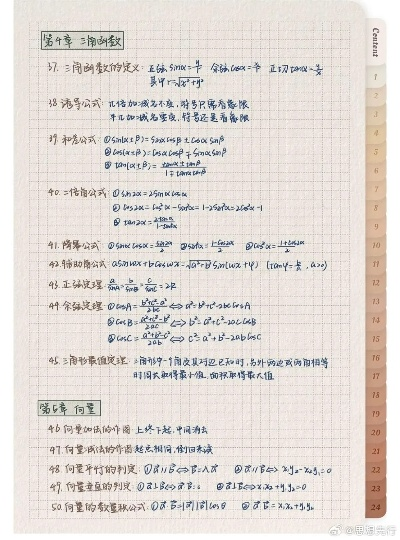 第4章 三角函数
37. 三角函数的定义: 正弦 sinα=y/r 余弦 cosα=x/r 正切 tanα=y/x
其中 r=√x²+y²
38. 诱导公式:
39. 和差公式 ①sin(α±β)=sinαcosβ±cosαsinβ
②cos(α±β)=cosαcosβ∓sinαsinβ
③tan(α±β)=(tanα±tanβ)/(1∓tanαtanβ)
40. 二倍角公式 ①sin2α=2sinαcosα
②cos2α=cos²α-sin²α=1-2sin²α=2cos²α-1
③tan2α=2tanα/(1-tan²α)
41. 降幂公式 ①sinαcosα=sin2α/2 ②sin²α=(1-cos2α)/2 ③cos²α=(1+cos2α)/2
42. 辅助角公式 asinωx+bcosωx=√a²+b² sin(ωx+φ) (tanφ=b/a, a>0)
43. 正弦定理 a/sinA=b/sinB=c/sinC=2R
44. 余弦定理 ①cosA=(b²+c²-a²)/2bc ⇔ a²=b²+c²-2bccosA
②cosB=(a²+c²-b²)/2ac ⇔ b²=a²+c²-2accosB
③cosC=(a²+b²-c²)/2ab ⇔ c²=a²+b²-2abcosC
45. 三角形最值定理: 三角形中一个角及其对边已知时, 另外两边或两角相等
时周长取得最小值, 面积取得最大值
第5章 向量
46. 向量加法的作图 上终下起, 中间消去
47. 向量减法的作图 起点相同, 倒回来读
48. 向量平行的判定 ①a∥b⇔b=λa ②a∥b⇔x₁y₂-x₂y₁=0
49. 向量垂直的判定 ①a⊥b⇔a·b=0 ②a⊥b⇔x₁x₂+y₁y₂=0
50. 向量的数量积公式 ①a·b=|a||b|cosθ ②a·b=x₁x₂+y₁y₂
Content
1
2
3
4
5
6
7
8
9
10
11
12
13
14
15
16
17
18
19
20
21
22
23
24